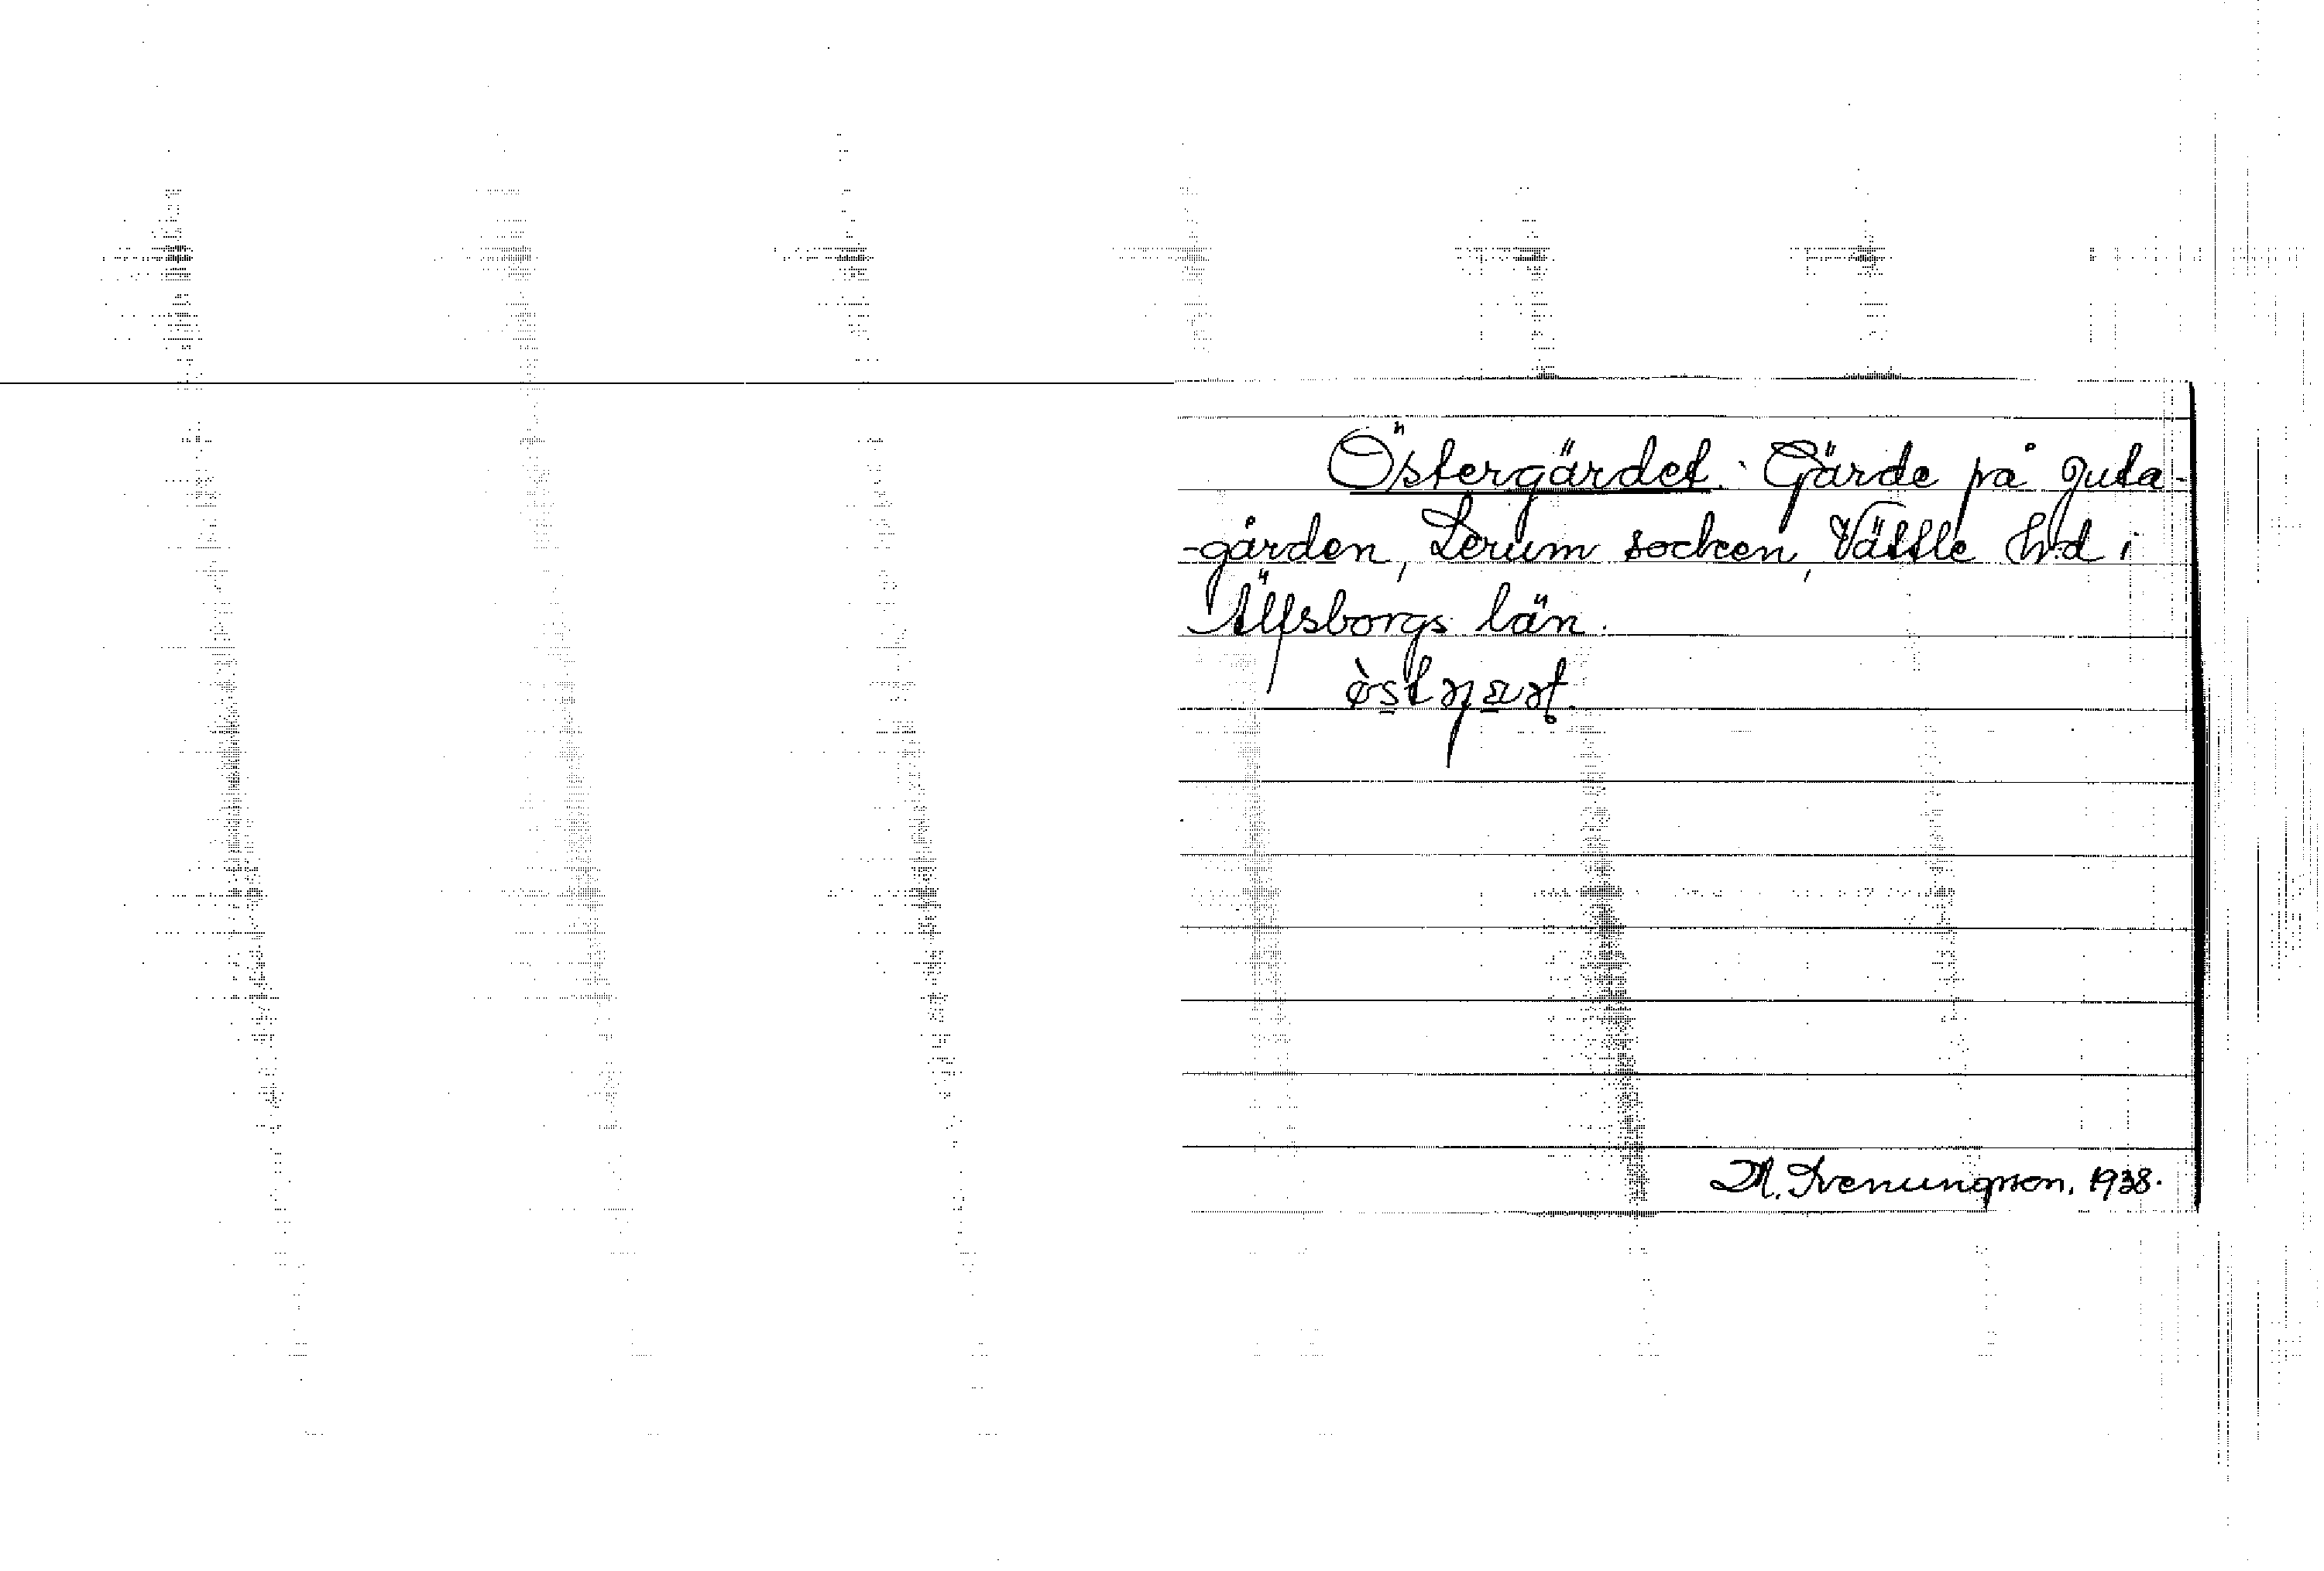 Östergärdet. Gärde på Guta-
-gården, Lerum socken, Vättle h:d i
Älfsborgs län.
M. Svenungsson. 1938.